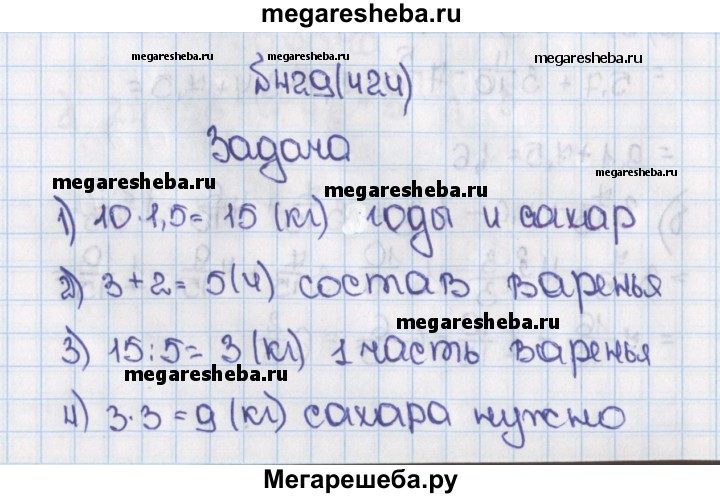 megaresheba.ru
megaresheba.ru megaresheba.ru
№429(424)
Задача
megaresheba.ru megaresheba.ru megaresheba.ru
1) 10·1,5=15 (кг) ягоды и сахар
2) 3+2=5(ч) состав варенья
megaresheba.ru
3) 15:5=3(кг) 1 часть варенья
megaresheba.ru
4) 3·3=9(кг) сахара нужно
Мегарешеба.ру